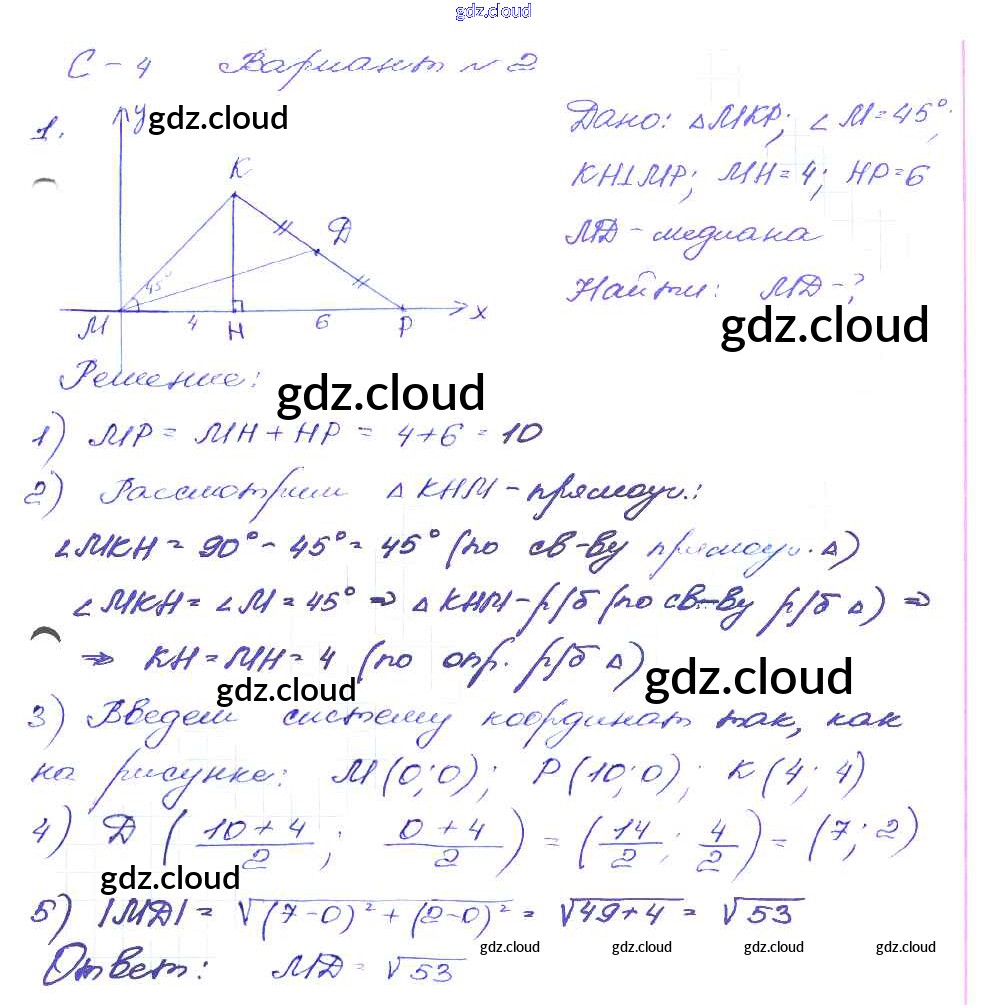 gdz.cloud
С-4 Вариант №2
1.
y gdz.cloud
K
Д
45°
M 4 H 6 P x
Дано: △MKP; ∠M=45°;
KH⊥MP; MH=4; HP=6
МД-медиана
Найти: МД-?
gdz.cloud
Решение:
gdz.cloud
1) MP = MH + HP = 4+6 = 10
2) Рассмотрим △KHM-прямоуг.:
∠MKH = 90° - 45° = 45° (по св-ву прямоуг. △)
∠MKH = ∠M = 45° ⇒ △KHM-р/б (по св-ву р/б △) ⇒
⇒ KH = MH = 4 (по опр. р/б △)
gdz.cloud gdz.cloud
3) Введем систему координат так, как
на рисунке: M(0;0); P(10;0); K(4;4)
4) Д ((10+4)/2; (0+4)/2) = (14/2; 4/2) = (7;2)
gdz.cloud
5) |МД| = √((7-0)²+(2-0)²) = √(49+4) = √53
gdz.cloud gdz.cloud gdz.cloud gdz.cloud
Ответ: МД = √53